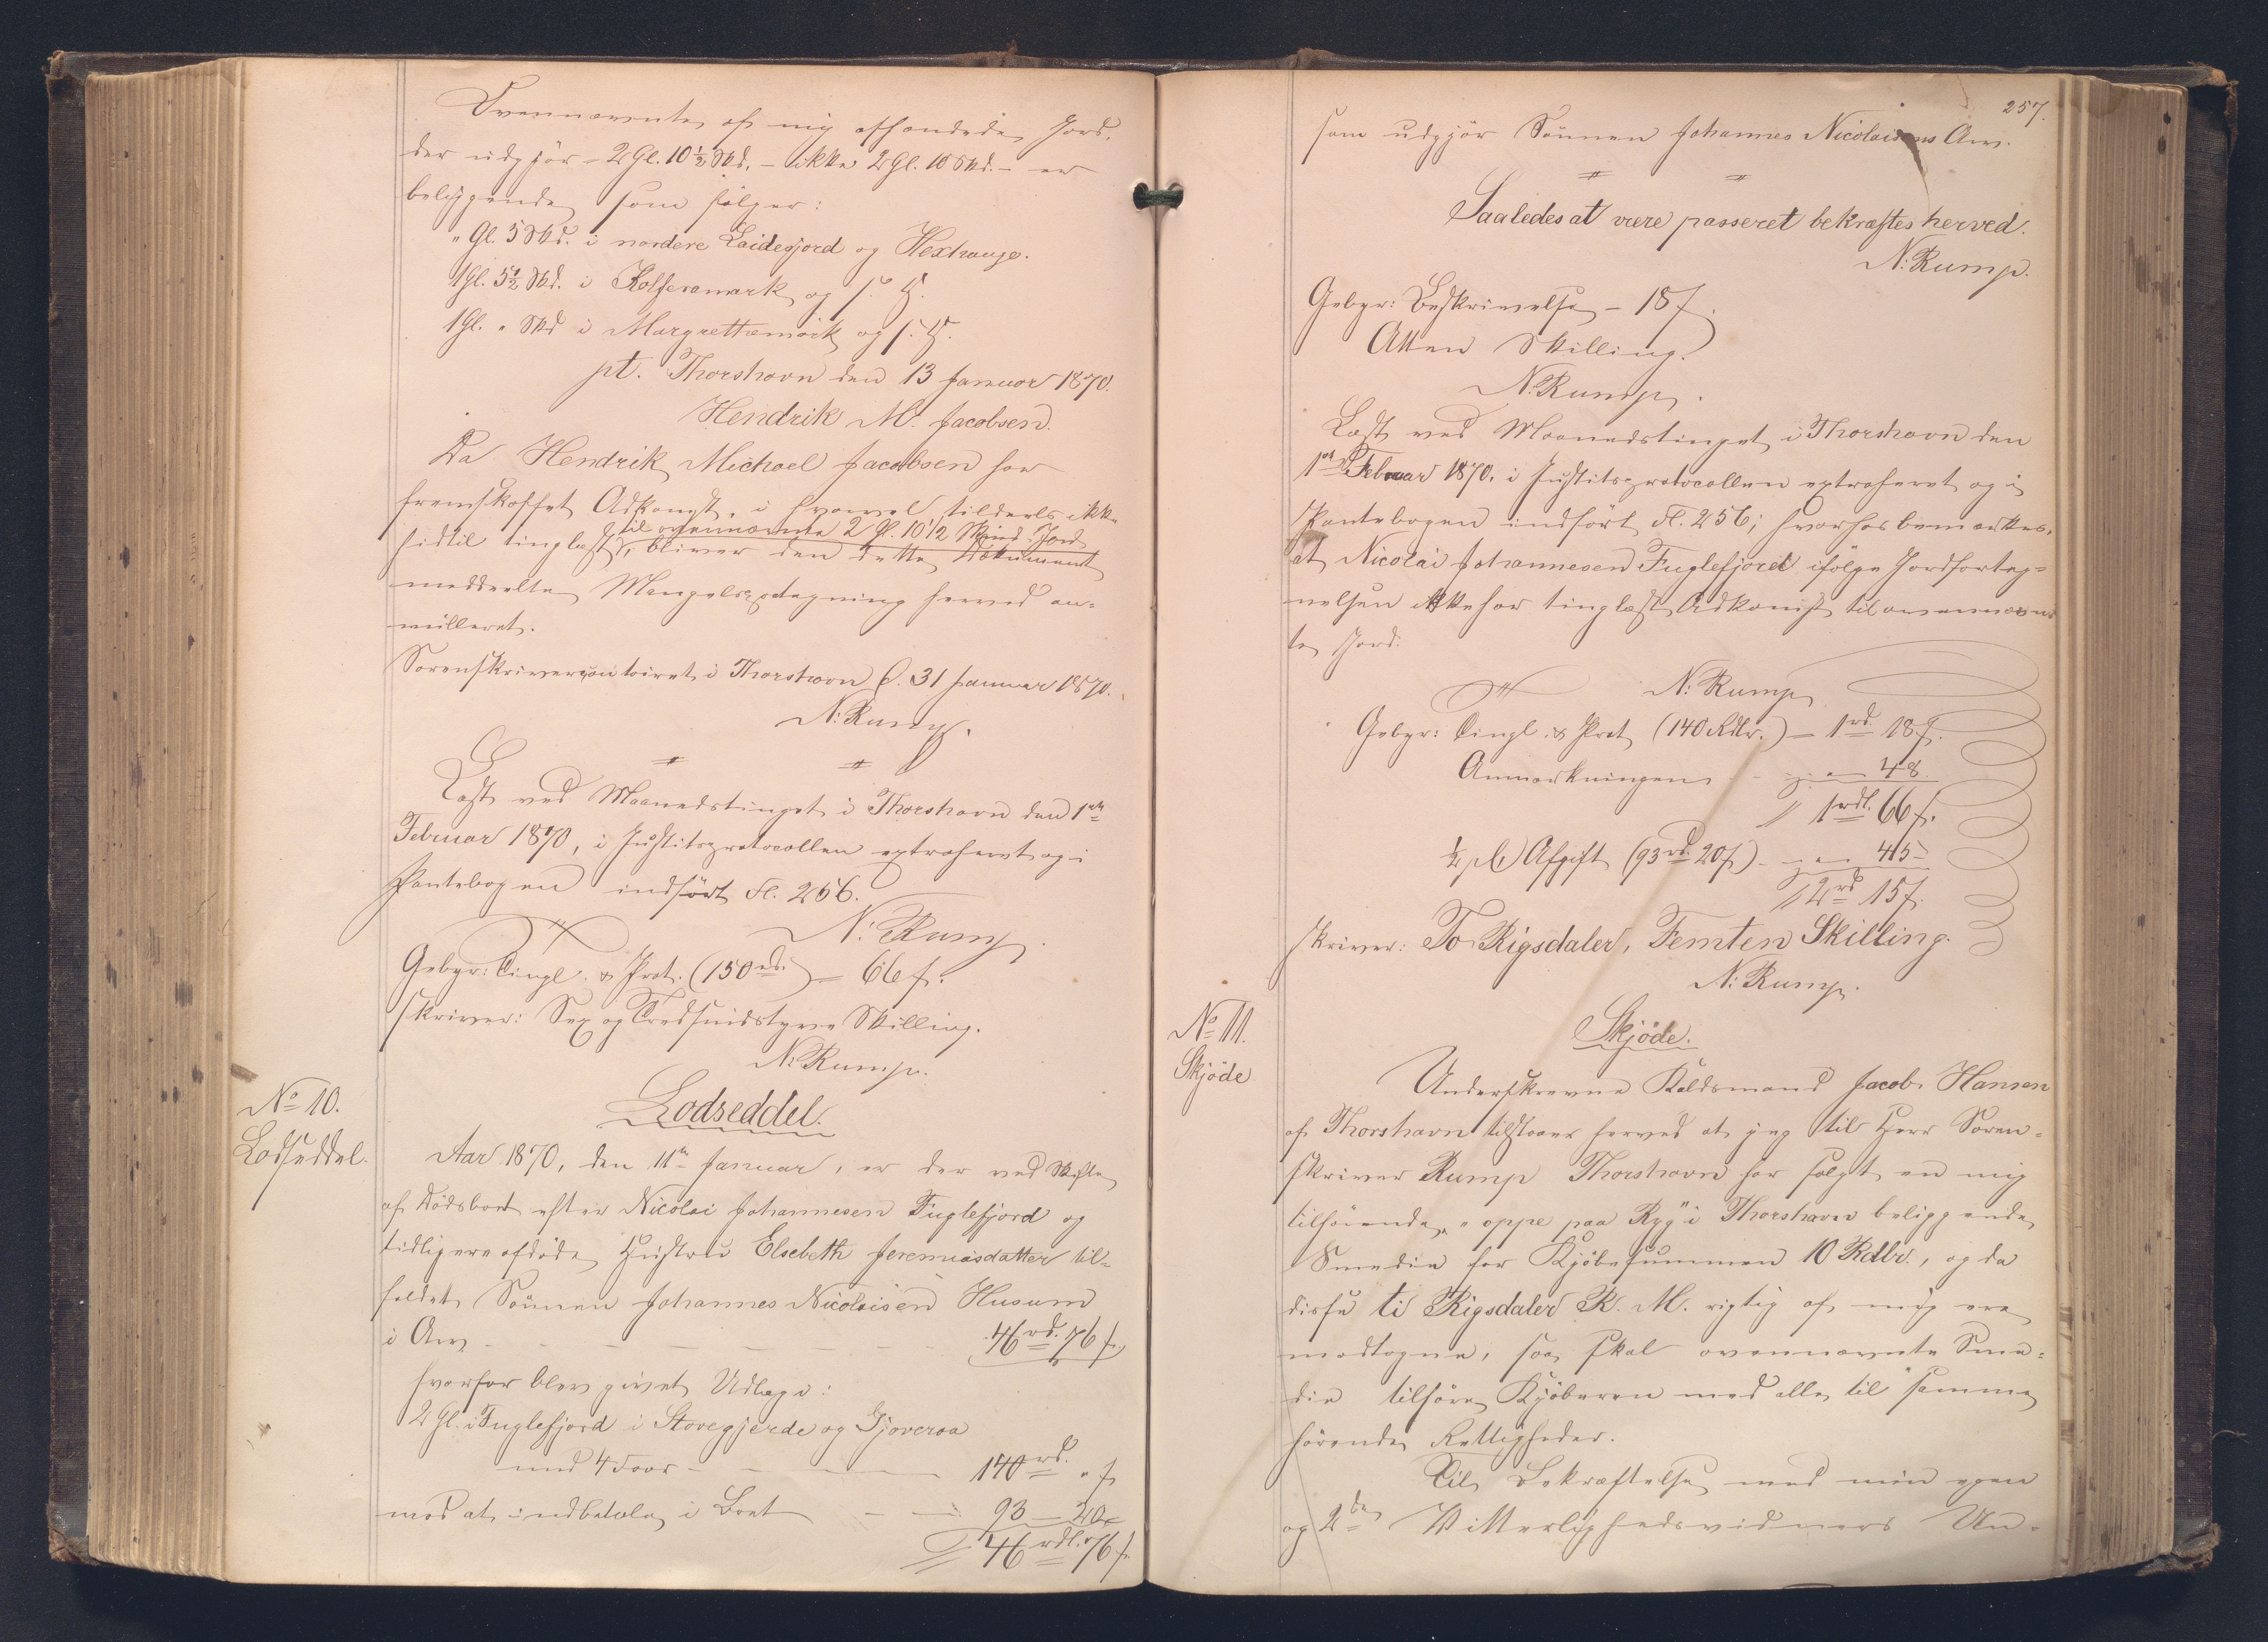 Ovennævnte af mig afhændede Jord,
der udgjør - 2 Gl. 10½ Skd. - ikke 2 Gl. 10 Skd. - er
beliggende som følger:
" Gl. 5 Skd. i nordere Leidesjord og Hexhauge.
1 Gl. 5½ Skd. i Kolferamark og s. H.
1 Gl. " Skd i Margrethemørk og s. H.
pt. Thorshavn den 13 Januar 1870.
Hendrik M. Jacobsen.
Da Hendrik Michael Jacobsen har
fremskaffet Adkomst, i hvorvel tildeels ikke
til ovennævnte 2 Gl. 10 1/2 Skind Jord
hidtil tinglæst, bliver den dette Dokument
meddeelte Mangelsptegning herved an-
nulleret.
Sorenskrivercontoiret i Thorshavn d. 31 Januar 1870.
N: Rump.
Læst ved Maanedstinget i Thorshavn den 1ste
Februar 1870, i Justitsprotocollen extraheret og i
Pantebogen indført Fl. 256.
N: Rump.
Gebyr: Tingl. & Prot. (150 rd.) = 66 s.
skriver: Sex og Tredsindstyve Skilling.
N: Rump.
No 10.
Lodseddel.
Lodseddel.
Aar 1870, den 11te Januar, er der ved Skifte
af Dødsboet efter Nicolai Johannesen Fuglefjord og
tidligere afdøde Hustru Elsebeth Jeremiasdatter til-
faldet Sønnen Johannes Nicolaisen Husum
i Arv - - - - - - 46 rd. 76 s.
hvorfor blev givet Udlæg i:
2 Gl. i Fuglefjord i Stovegjerde og Gjoveraa
med 4 Faar - - - 140 rd. " s
mod at indbetale i Boet - - 93 - 20 -
46 rdl. 76 s.
257.
som udgjør Sønnen Johannes Nicolaisens Arv.
Saaledes at være passeret bekræftes herved.
N: Rump.
Gebyr: Beskrivelse - 18 s.
Atten Skilling.
N: Rump.
Læst ved Maanedstinget i Thorshavn den
1ste Februar 1870. i Justitsprotocollen extraheret og i
Pantebogen indført Fl. 256; hvorhos bemærkes,
at Nicolai Johannesen Fuglefjord ifølge Jordforteg-
nelsen ikke har tinglæst Adkomst til ovennævn-
te Jord.
N: Rump
Gebyr: Tingl. & Prot (140 Rdlr.) - 1 rd. 18 s.
Anmærkningen - - " - 48.
1 rdl. 66 s.
½ pCt Afgift (93 rd. 20 s) - " - 45 -
2 rd 15 s.
skriver: To Rigsdaler, Femten Skilling.
N: Rump.
No 11.
Skjöde
Skjöde.
Underskrevne Koldsmand Jacob Hansen
af Thorshavn tilstaaer herved at jeg til Herr Soren-
skriver Rump Thorshavn har solgt en mig
tilhørende, "oppe paa Ryg" i Thorshavn beliggende
Smedie for Kjöbesummen 10 Rdlr., og da
disse ti Rigsdaler R. M. rigtig af mig ere
modtagne, saa skal ovennævnte Sme-
die tilhøre Kjöberen med alle til samme
hørende Rettigheder.
Til Bekræftelse med min egen
og 2de Vitterlighedsvidners Un-